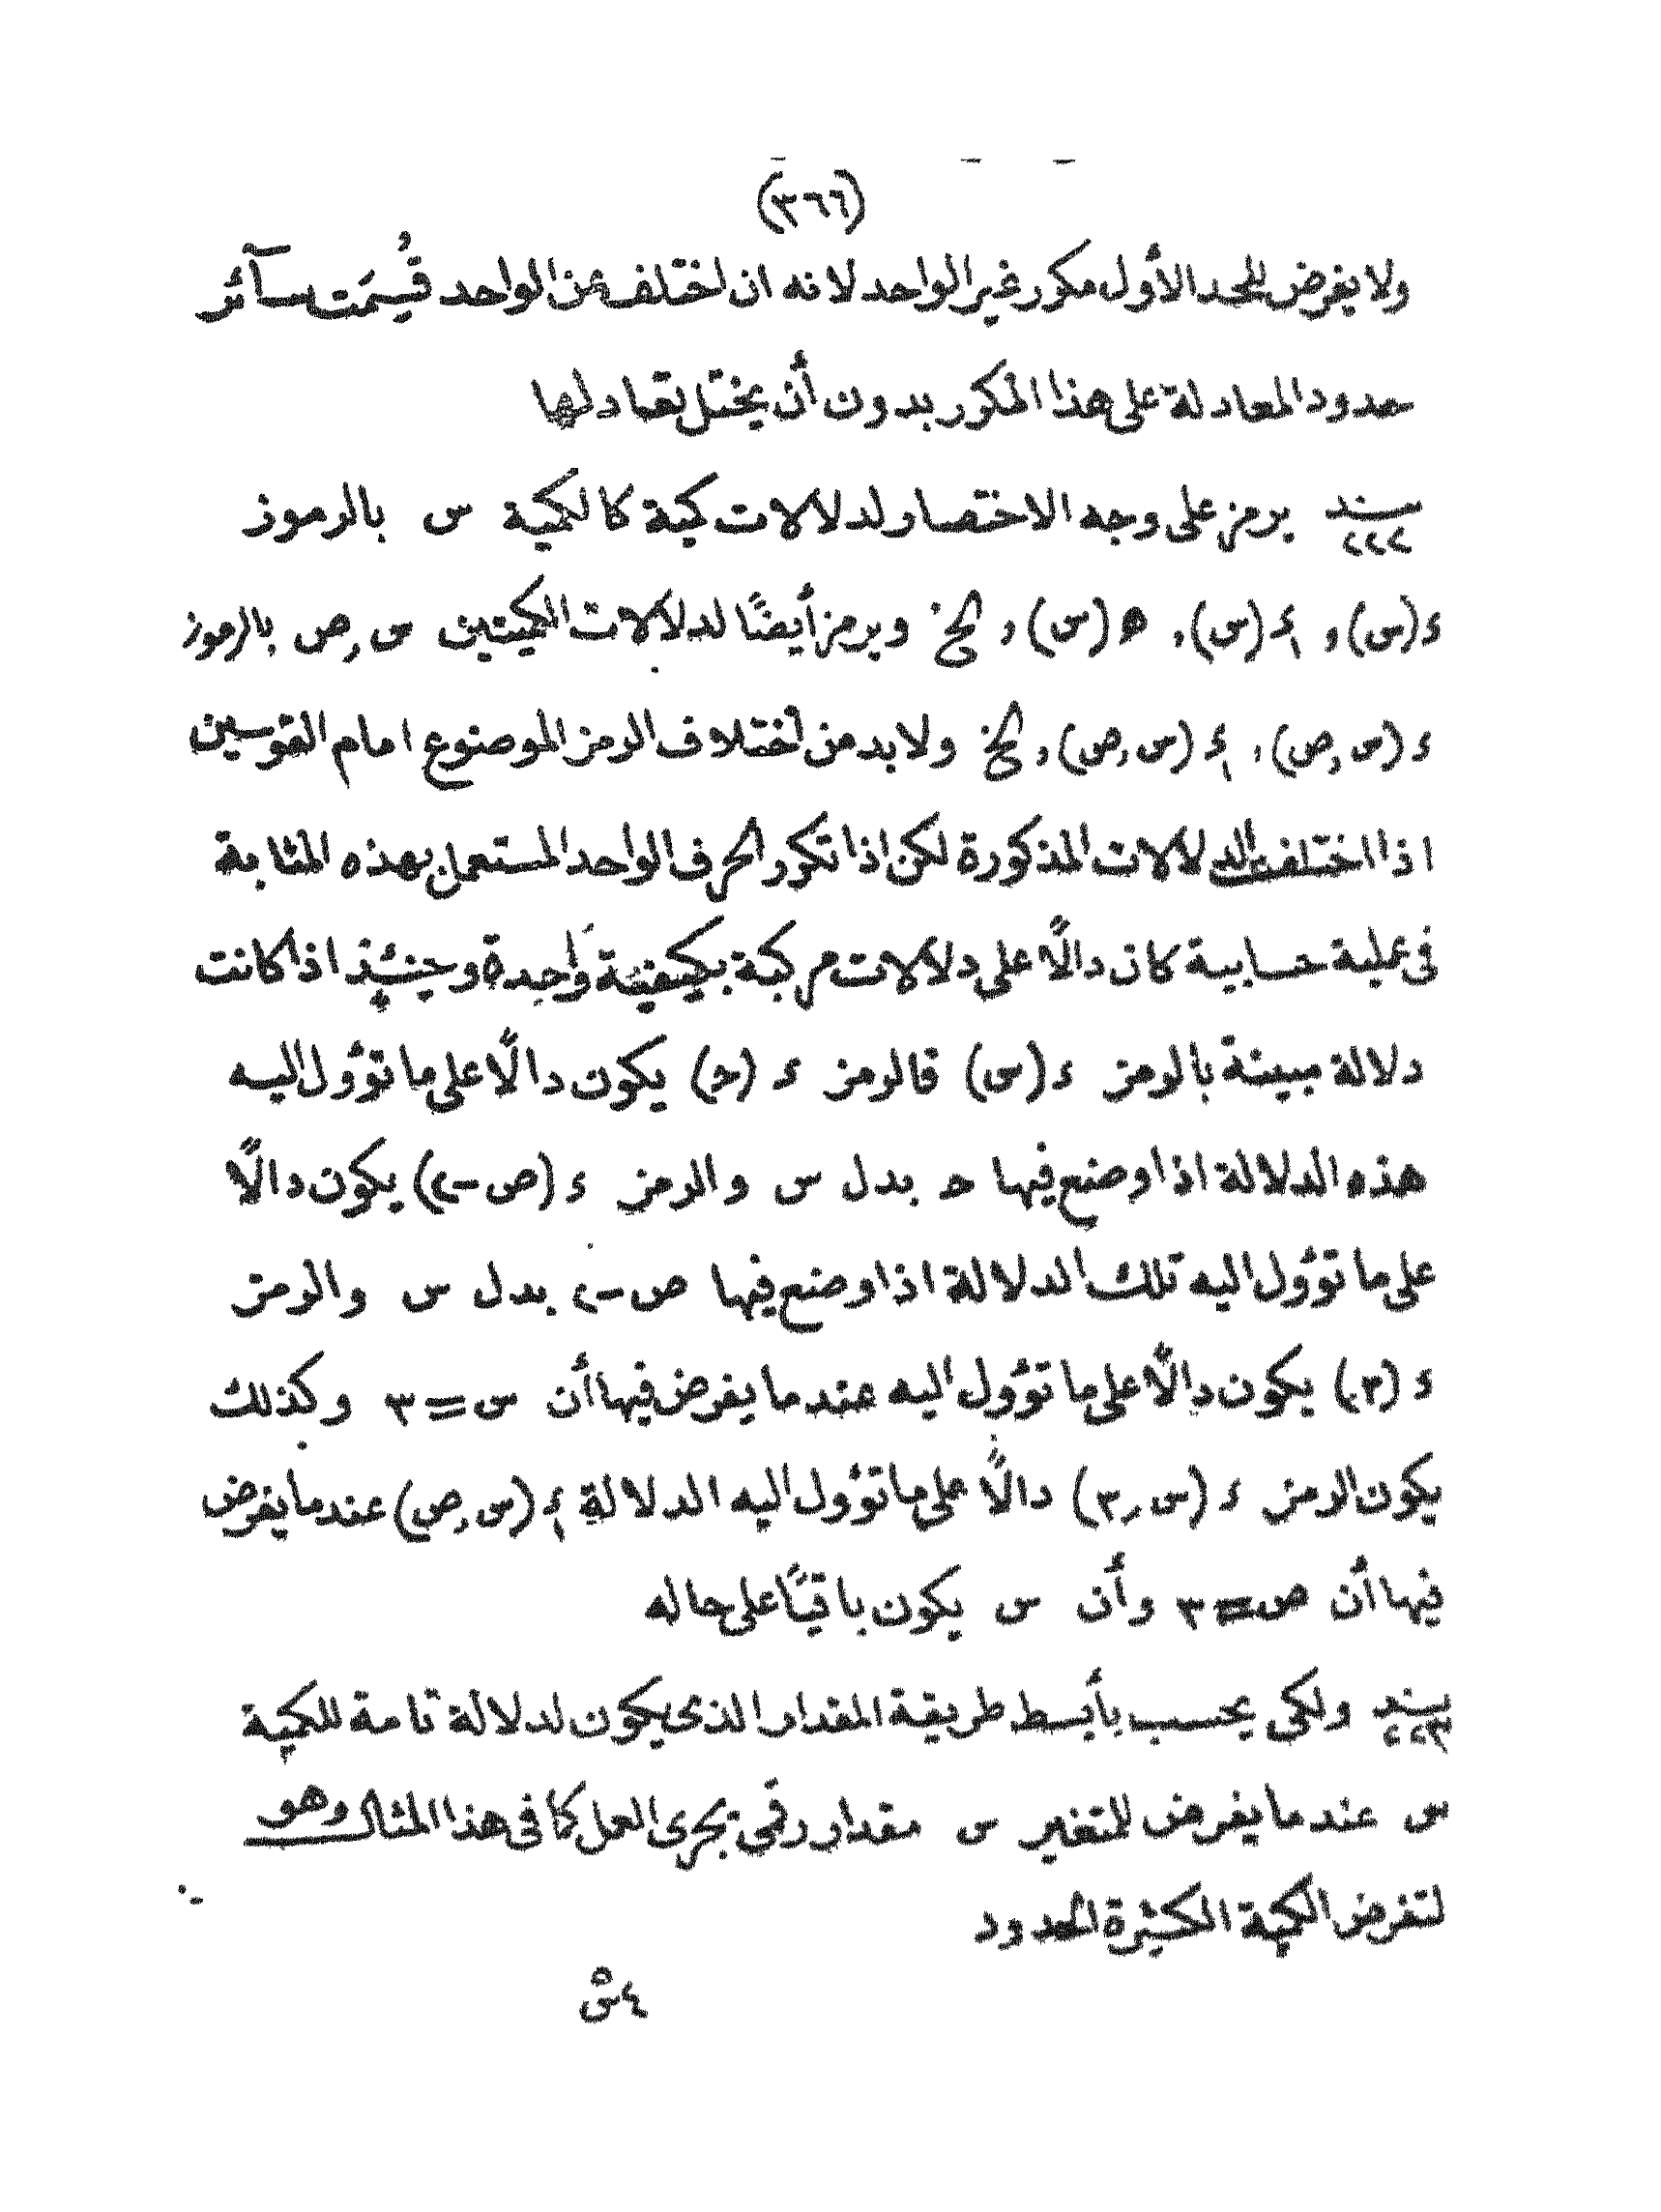 (٣٦٦)
ولا يفرض للحد الأول مكرر غير الواحد لانه ان اختلف عن الواحد قُسِمَت سآئر
حدود المعادلة على هذا المكرر بدون أن يختل تعادلها
سند ٢٢٢ يرمز على وجه الاختصار لدلالات كمية كالكمية س بالرموز
ء (س) و ءٰ (س) و ھ (س) و الخ ويرمز أيضًا لدلالات الكميتين س , ص بالرموز
ء (س , ص) , ءٰ (س , ص) و الخ ولا بد من اختلاف الرمز الموضوع امام القوسين
اذا اختلفت الدلالات المذكورة لكن اذا تكرر الحرف الواحد المستعمل بهذه المثابة
فى عملية حسابية كان دالًا على دلالات مركبة بكيفية وَاحِدة وحينئذٍ اذا كانت
دلالة مبينة بالرمز ء (س) فالرمز ء (حـ) يكون دالًا على ما تؤول اليه
هذه الدلالة اذا وضع فيها حـ بدل س والرمز ء (ص -٢) يكون دالًا
على ما تؤول اليه تلك الدلالة اذا وضع فيها ص -٢ بدل س والرمز
ء (٣) يكون دالًا على ما تؤول اليه عند ما يفرض فيها أن س = ٣ وكذلك
يكون الرمز ء (س , ٣) دالًا على ما تؤول اليه الدلالة ءٰ (س , ص) عند ما يفرض
فيها أن ص = ٣ وأن س يكون باقيًا على حاله
سند ٢٢٣ ولكى يحسب بأبسط طريقة المقدار الذى يكون لدلالة تامة للكمية
س عند ما يفرض للمتغير س مقدار رقمى تجرى العمل كما فى هذا المثال وهو
لتفرض الكمية الكثيرة الحدود
٤س٥